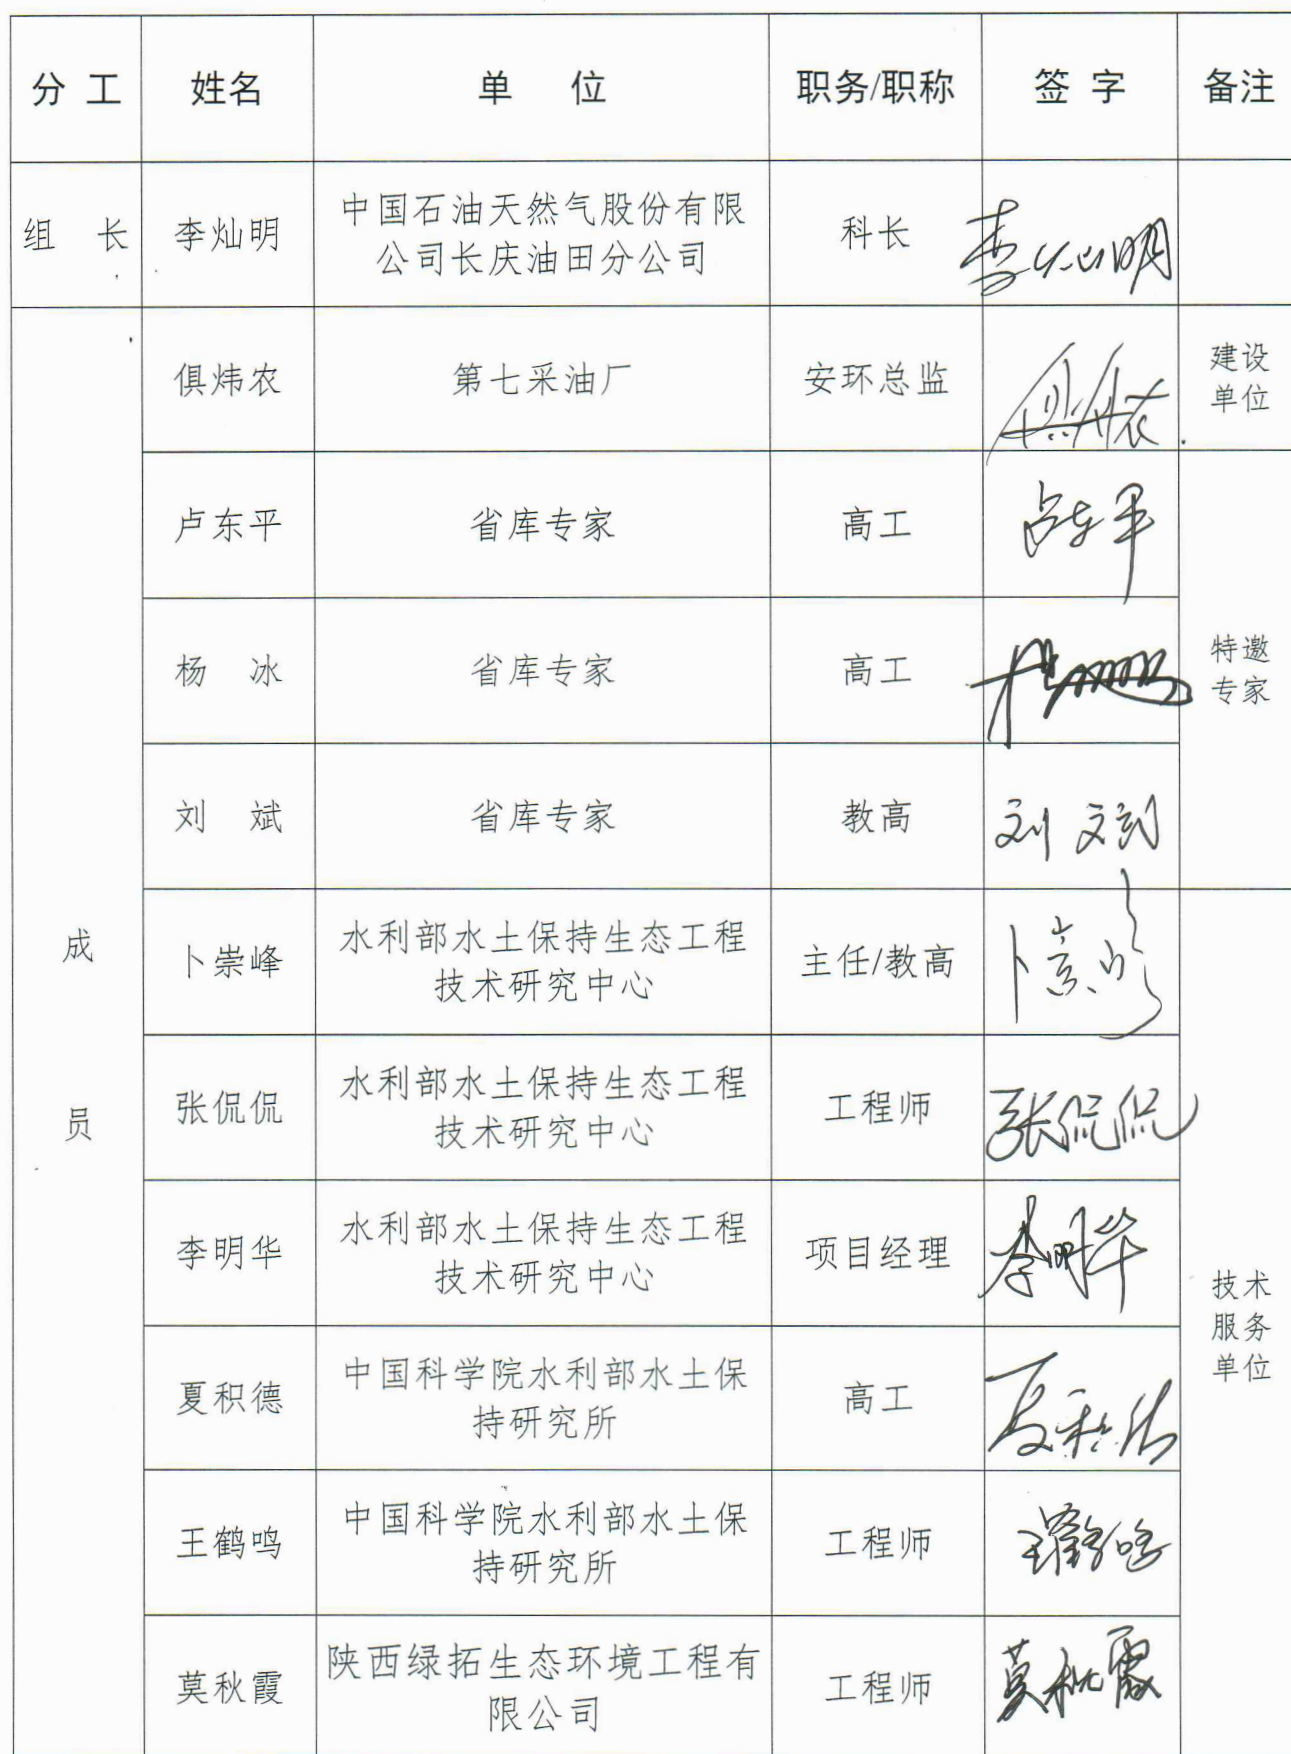 分 工 姓名 单 位 职务/职称 签 字 备注
组 长 李灿明 中国石油天然气股份有限
公司长庆油田分公司 科长 李灿明
俱炜农 第七采油厂 安环总监 俱炜农 建设
单位
卢东平 省库专家 高工 卢东平
杨 冰 省库专家 高工 特邀
专家
刘 斌 省库专家 教高 刘斌
成
员
卜崇峰 水利部水土保持生态工程
技术研究中心 主任/教高 卜崇峰
张侃侃 水利部水土保持生态工程
技术研究中心 工程师 张侃侃
李明华 水利部水土保持生态工程
技术研究中心 项目经理 李明华
技术
服务
单位
夏积德 中国科学院水利部水土保
持研究所 高工 夏积德
王鹤鸣 中国科学院水利部水土保
持研究所 工程师 王鹤鸣
莫秋霞 陕西绿拓生态环境工程有
限公司 工程师 莫秋霞